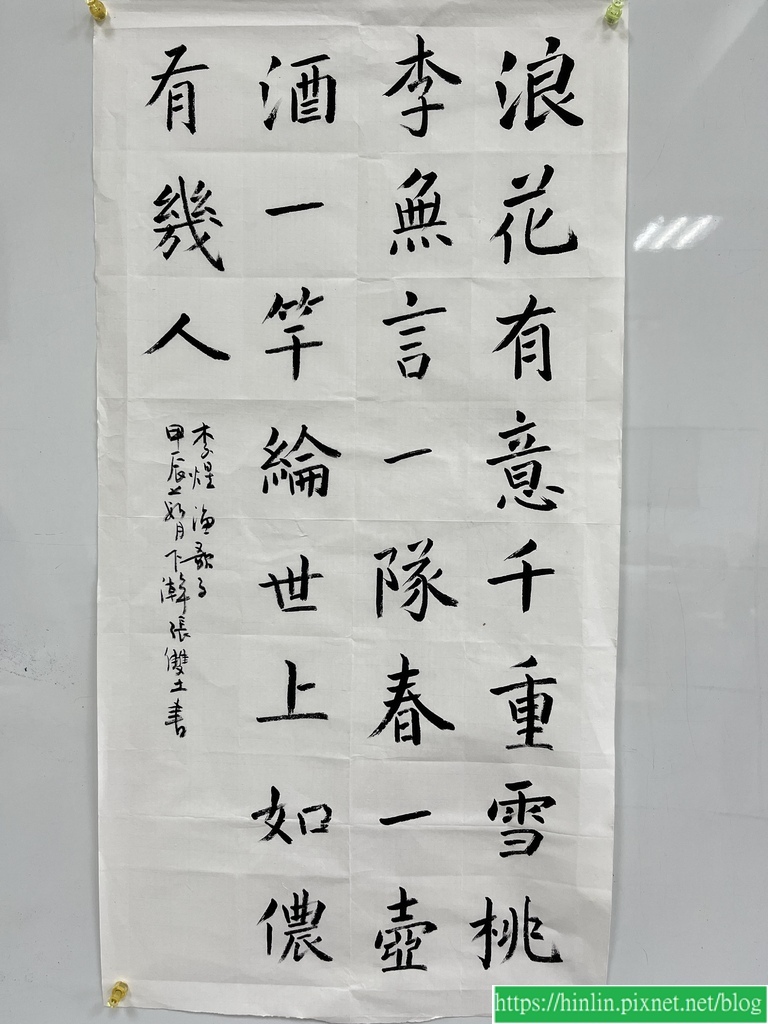 浪花有意千重雪桃
李無言一隊春一壺
酒一竿綸世上如儂
有幾人
李煜漁歌子
甲辰如月下澣張雙土書
https://hinlin.pixnet.net/blog